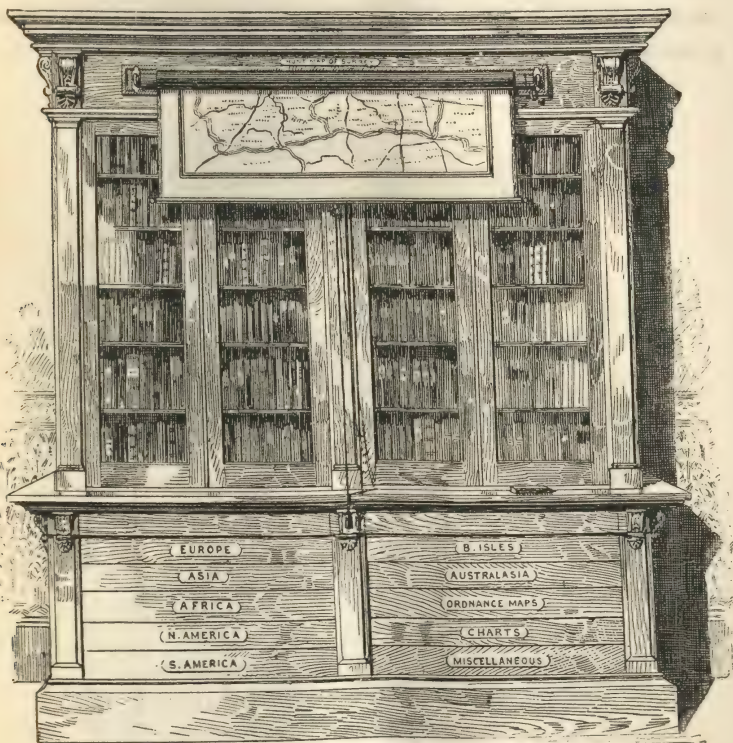 MAP OF SURREY
EUROPE
ASIA
AFRICA
N. AMERICA
S. AMERICA
B. ISLES
AUSTRALASIA
ORDNANCE MAPS
CHARTS
MISCELLANEOUS